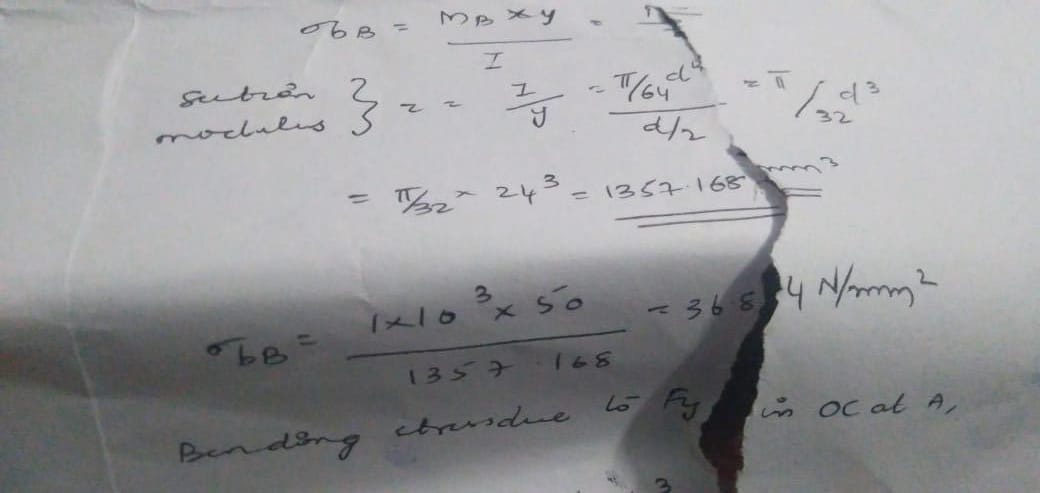 σbB = MB × y / I =
Section modulus } z = I / y = π/64 d⁴ / d/2 = π/32 d³
= π/32 × 24³ = 1357.168 mm³
σbB = 1×10³ × 50 / 1357.168 = 36.84 N/mm²
Bending stress due to Fy in OC at A,
3